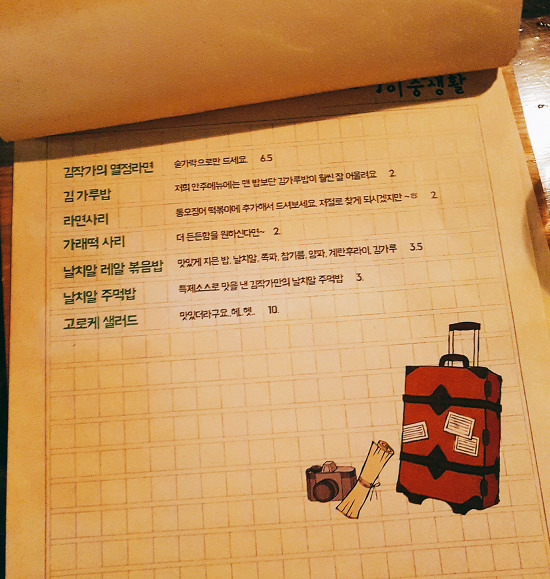 이중생활
김작가의 열정라면 숟가락으로만 드세요. 6.5
김 가루밥 저희 안주메뉴에는 맨 밥보단 김가루밥이 훨씬 잘 어울려요 2
라면사리 통오징어 떡볶이에 추가해서 드셔보세요. 저절로 찾게 되시겠지만 ~ㅎ 2.
가래떡 사리 더 든든함을 원하신다면~ 2.
날치알 레알 볶음밥 맛있게 지은 밥, 날치알, 쪽파, 참기름, 양파, 계란후라이, 김가루 3.5
날치알 주먹밥 특제소스로 맛을 낸 김작가만의 날치알 주먹밥 3.
고로케 샐러드 맛있더라구요. 헤.. 헷.. 10.